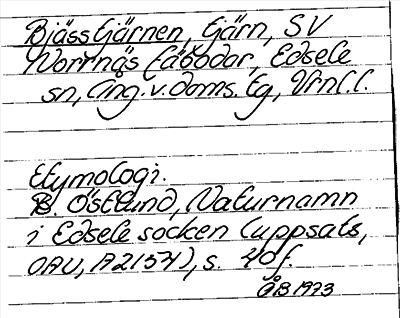 Bjässtjärnen, tjärn, SV
Norrnäs fäbodar, Edsele
sn, Ång. v. doms. tg, Vrnl. l.
Etymologi.
B. Östlund, Naturnamn
i Edsele socken (uppsats,
OAU, A2157), s. 40 f.
ÅB 1973